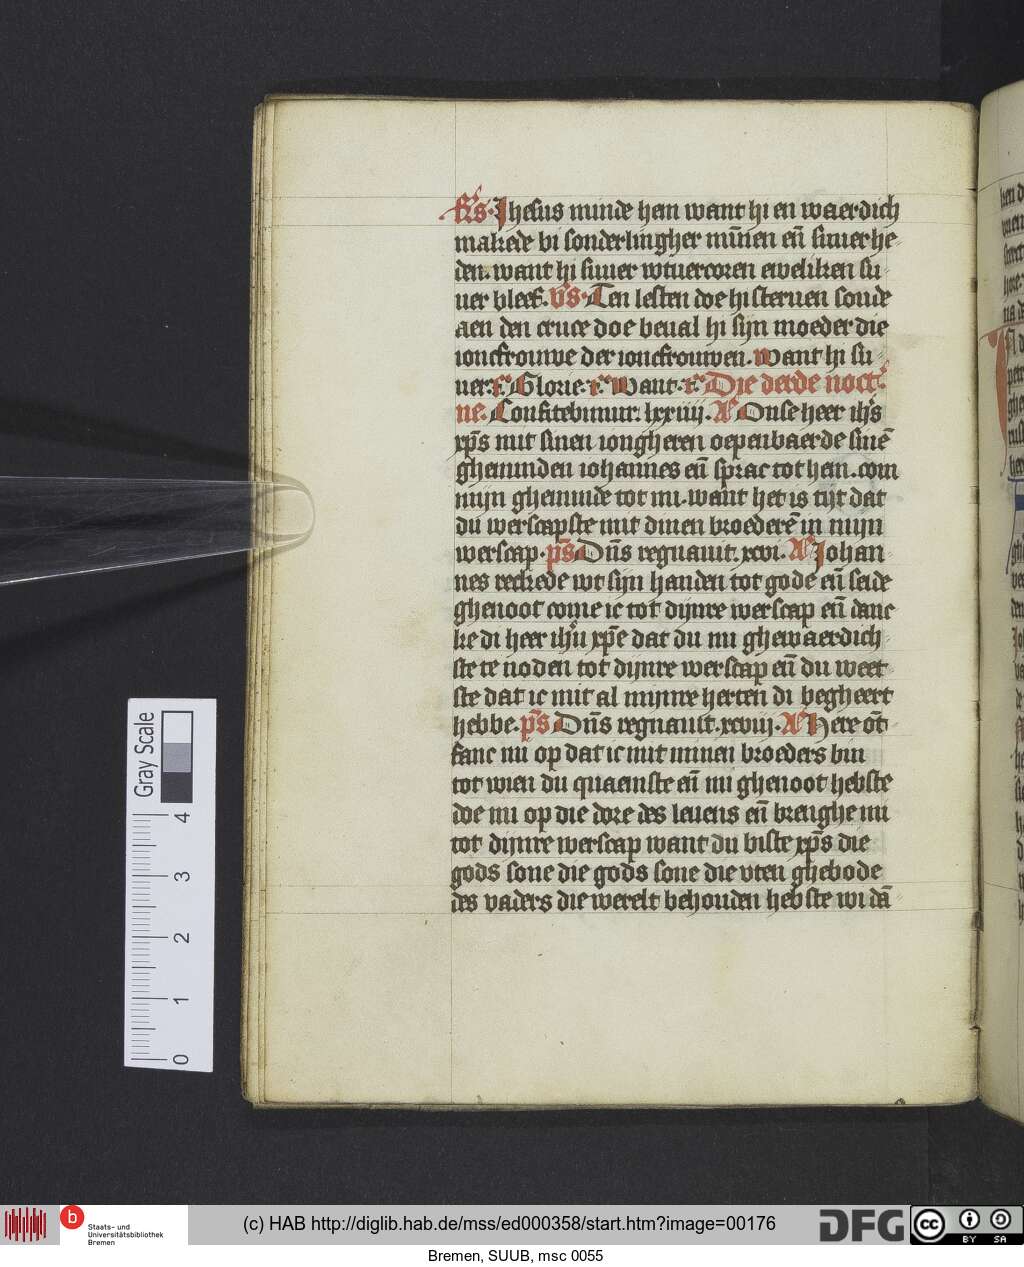 R̄s. Jhesus minde hem want hi en waerdich
makede bi sonderlingher mi̅nen en̅ suuerhe
den. want hi suuer wtuercoren eweliken su
uer bleef. v̄s. Ten lesten doe hi steruen soude
aen den cruce doe beual hi sijn moeder die
ioncfrouwe der ioncfrouwen. want hi su
uer. Glorie. want. Die derde noct
ne. Confitebimur. lxxiiij. A Onse heer ih̅s
xp̅s mit sinen iongheren oepenbaerde sine̅
gheminden iohannes en̅ sprac tot hem. com
mijn gheminde tot mi. want het is tijt dat
du werscapste mit dinen broedere̅ in mijn
werscap. p̅s Dn̅s regnauit. xcvi. A Johan
nes reckede wt sijn handen tot gode en̅ seide
ghenoot come ic tot dijnre werscap en̅ danc
ke di heer ih̅u xp̅e dat du mi ghewaerdich
ste te noden tot dijnre werscap en̅ du weet
ste dat ic mit al mijnre herten di begheert
hebbe. p̅s Dn̅s regnauit. xcviij. A Here o̅t
fanc mi op dat ic mit minen broeders bin
tot wien du quaemste en̅ mi ghenoot hebste
doe mi op die dore des leuens en̅ brenghe mi
tot dijnre werscap want du biste xp̅s die
gods sone die gods sone die vten ghebode
des vaders die werelt behouden hebste wi da̅
Gray Scale
4
3
2
1
0
b
Staats- und
Universitätsbibliothek
Bremen
(c) HAB http://diglib.hab.de/mss/ed000358/start.htm?image=00176
DFG
cc
BY SA
Bremen, SUUB, msc 0055